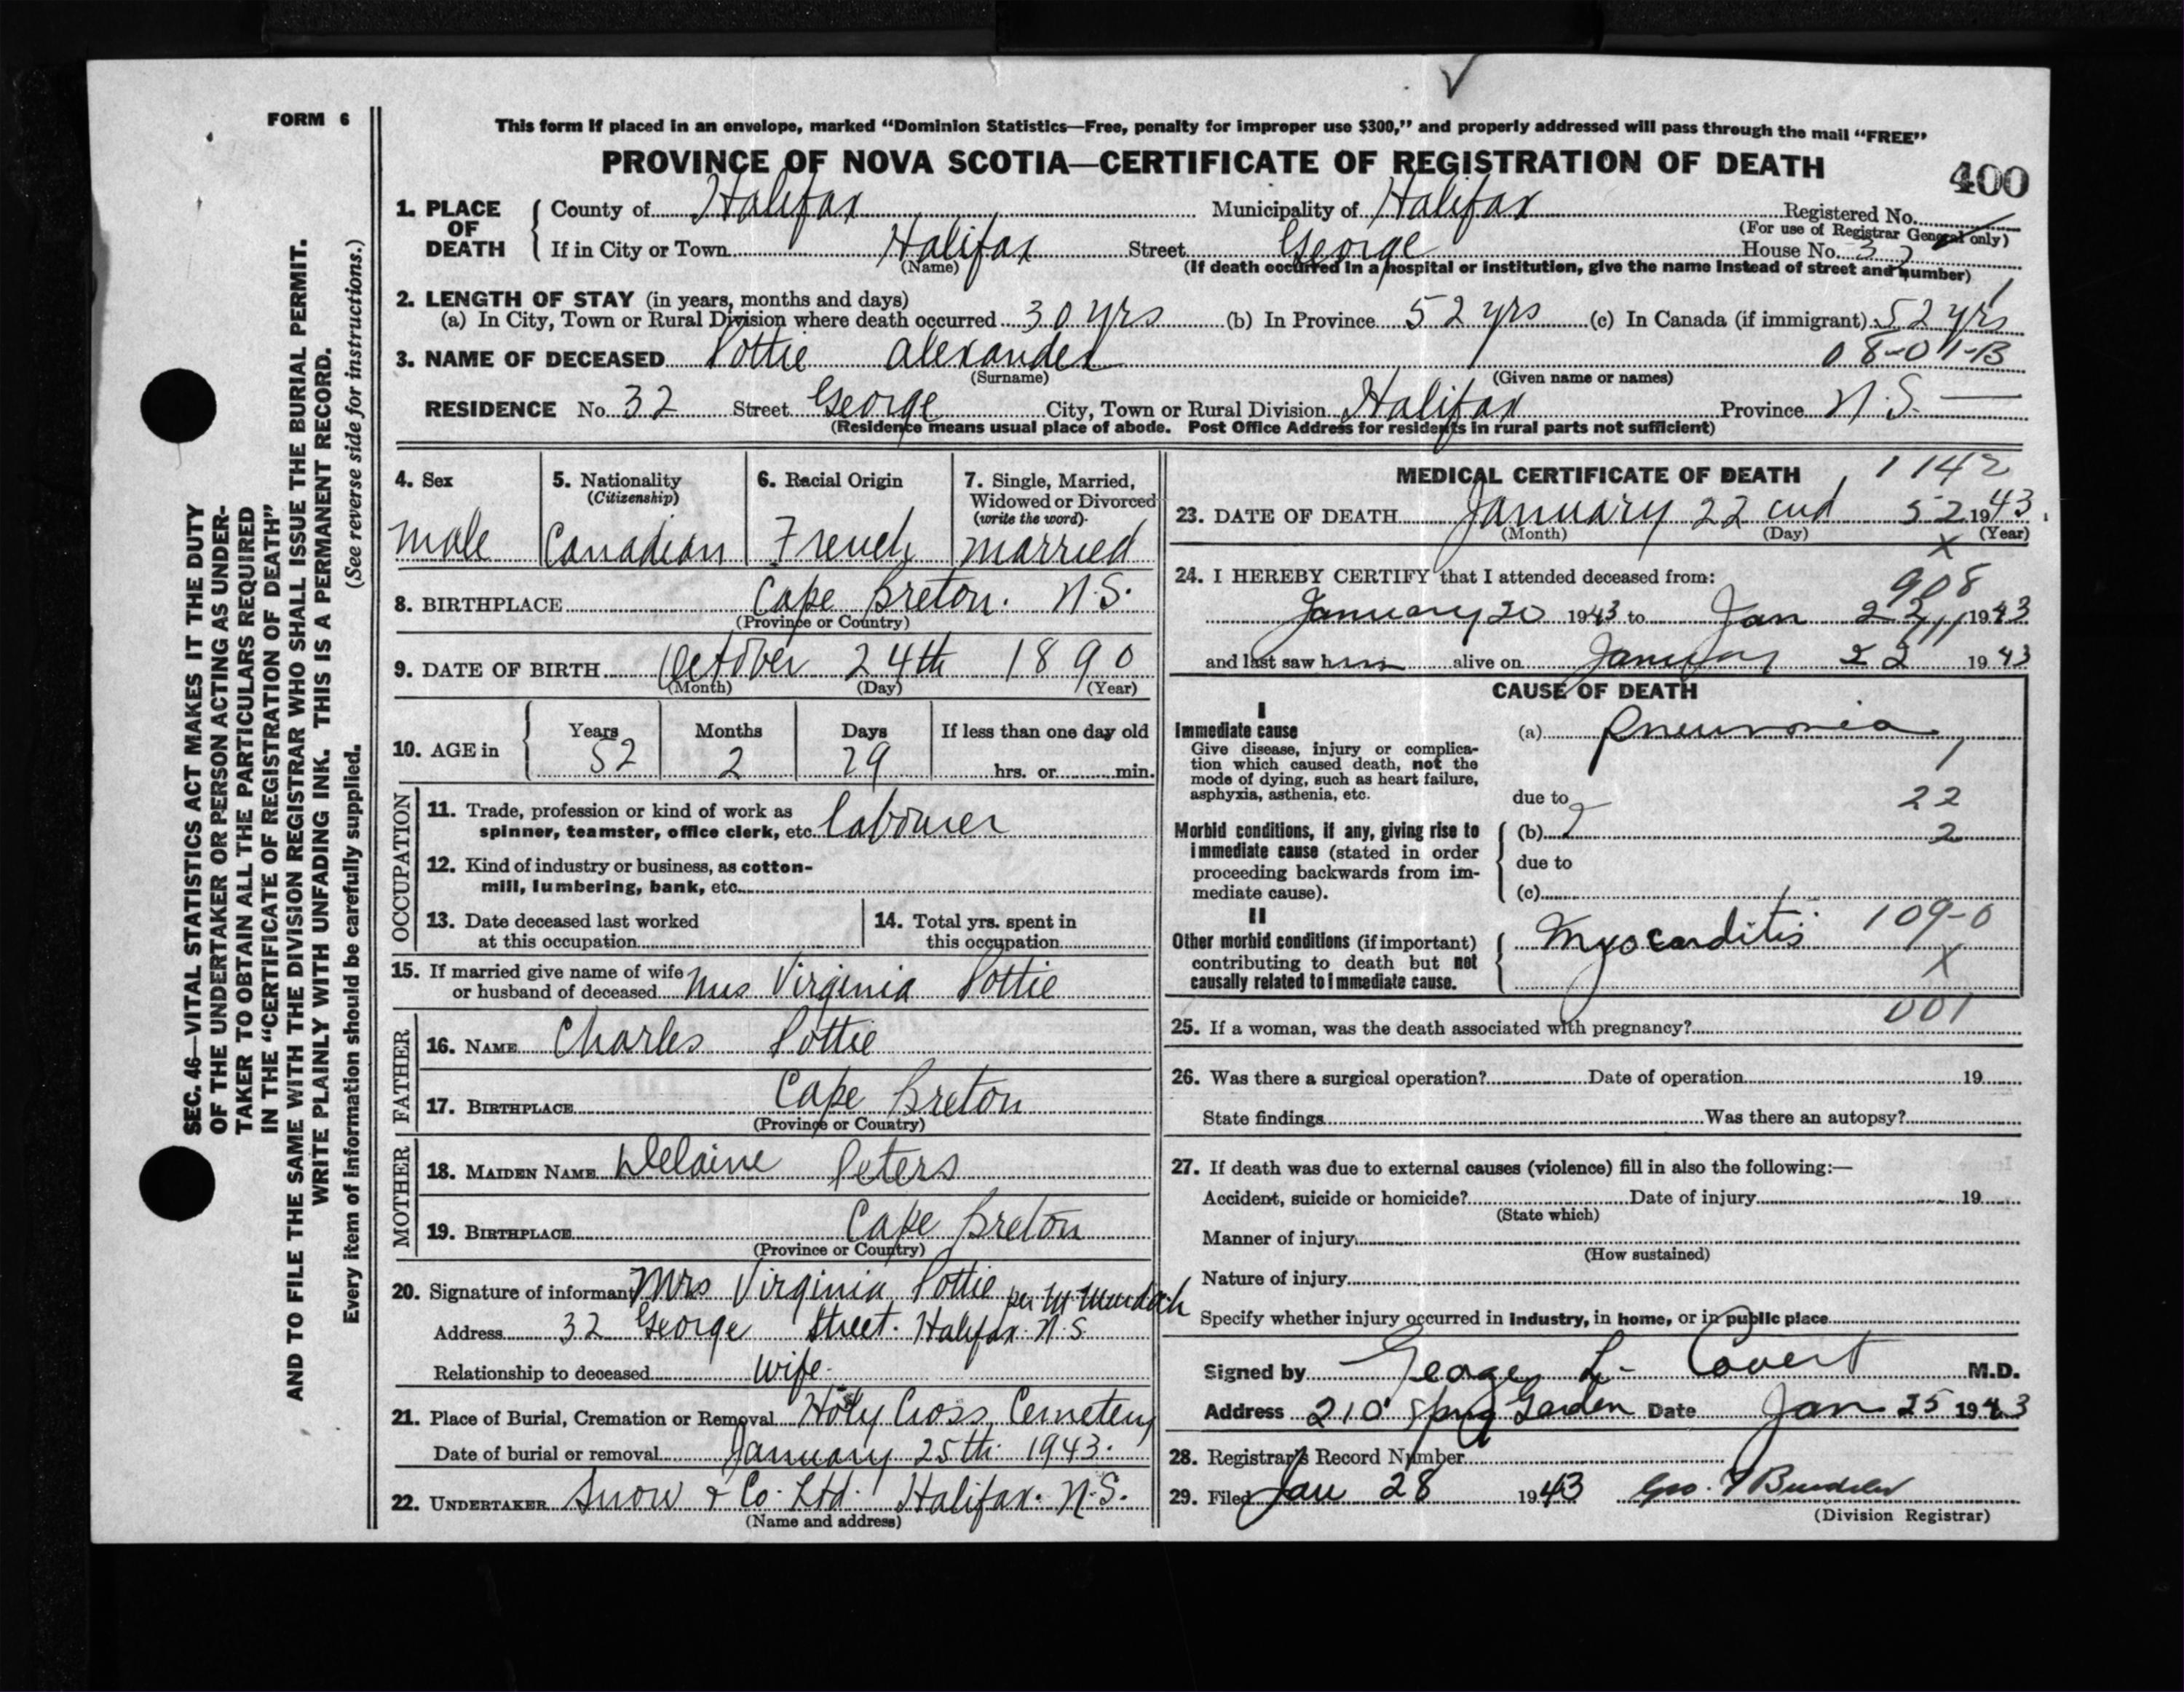 FORM 6
This form if placed in an envelope, marked "Dominion Statistics—Free, penalty for improper use $300," and properly addressed will pass through the mail "FREE"
PROVINCE OF NOVA SCOTIA—CERTIFICATE OF REGISTRATION OF DEATH
400
1. PLACE OF DEATH { County of Halifax Municipality of Halifax Registered No.
(For use of Registrar General only)
If in City or Town Halifax Street George House No. 32
(Name) (If death occurred in a hospital or institution, give the name instead of street and number)
2. LENGTH OF STAY (in years, months and days)
(a) In City, Town or Rural Division where death occurred 30 yrs (b) In Province 52 yrs (c) In Canada (if immigrant) 52 yrs
3. NAME OF DECEASED Pottie Alexander 08-01-B
(Surname) (Given name or names)
RESIDENCE No. 32 Street George City, Town or Rural Division Halifax Province N.S.
(Residence means usual place of abode. Post Office Address for residents in rural parts not sufficient)
SEC. 46—VITAL STATISTICS ACT MAKES IT THE DUTY
OF THE UNDERTAKER OR PERSON ACTING AS UNDER-
TAKER TO OBTAIN ALL THE PARTICULARS REQUIRED
IN THE "CERTIFICATE OF REGISTRATION OF DEATH"
AND TO FILE THE SAME WITH THE DIVISION REGISTRAR WHO SHALL ISSUE THE BURIAL PERMIT.
WRITE PLAINLY WITH UNFADING INK. THIS IS A PERMANENT RECORD.
Every item of information should be carefully supplied. (See reverse side for instructions.)
4. Sex
male
5. Nationality
(Citizenship)
Canadian
6. Racial Origin
French
7. Single, Married,
Widowed or Divorced
(write the word)
married
8. BIRTHPLACE Cape Breton. N.S.
(Province or Country)
9. DATE OF BIRTH October 24th 1890
(Month) (Day) (Year)
10. AGE in { Years Months Days If less than one day old
52 2 29 hrs. or min.
OCCUPATION
11. Trade, profession or kind of work as
spinner, teamster, office clerk, etc. labourer
12. Kind of industry or business, as cotton-
mill, lumbering, bank, etc.
13. Date deceased last worked
at this occupation
14. Total yrs. spent in
this occupation
15. If married give name of wife
or husband of deceased Mrs Virginia Pottie
FATHER
16. NAME Charles Pottie
17. BIRTHPLACE Cape Breton
(Province or Country)
MOTHER
18. MAIDEN NAME Delaine Peters
19. BIRTHPLACE Cape Breton
(Province or Country)
20. Signature of informant Mrs Virginia Pottie per
Address 32 George Street. Halifax. N.S.
Relationship to deceased wife.
21. Place of Burial, Cremation or Removal Holy Cross Cemetery
Date of burial or removal January 25th 1943.
22. UNDERTAKER Snow & Co. Ltd. Halifax. N.S.
(Name and address)
MEDICAL CERTIFICATE OF DEATH 1142
23. DATE OF DEATH January 22 52 1943
(Month) (Day) (Year)
x
24. I HEREBY CERTIFY that I attended deceased from:
908
January 20 1943 to Jan 22 1943
and last saw him alive on January 22 1943
CAUSE OF DEATH
I
Immediate cause
Give disease, injury or complica-
tion which caused death, not the
mode of dying, such as heart failure,
asphyxia, asthenia, etc.
(a) Pneumonia
1
due to 22
Morbid conditions, if any, giving rise to
immediate cause (stated in order
proceeding backwards from im-
mediate cause).
(b) 2
due to
(c)
II
Other morbid conditions (if important)
contributing to death but not
causally related to immediate cause.
Myocarditis 109-0
X
001
25. If a woman, was the death associated with pregnancy?
26. Was there a surgical operation? Date of operation 19
State findings Was there an autopsy?
27. If death was due to external causes (violence) fill in also the following:—
Accident, suicide or homicide? Date of injury 19
(State which)
Manner of injury
(How sustained)
Nature of injury
Specify whether injury occurred in industry, in home, or in public place
Signed by George L. Covert M.D.
Address 210 Spring Garden Date Jan 25 1943
28. Registrar's Record Number
29. Filed Jan 28 1943
(Division Registrar)